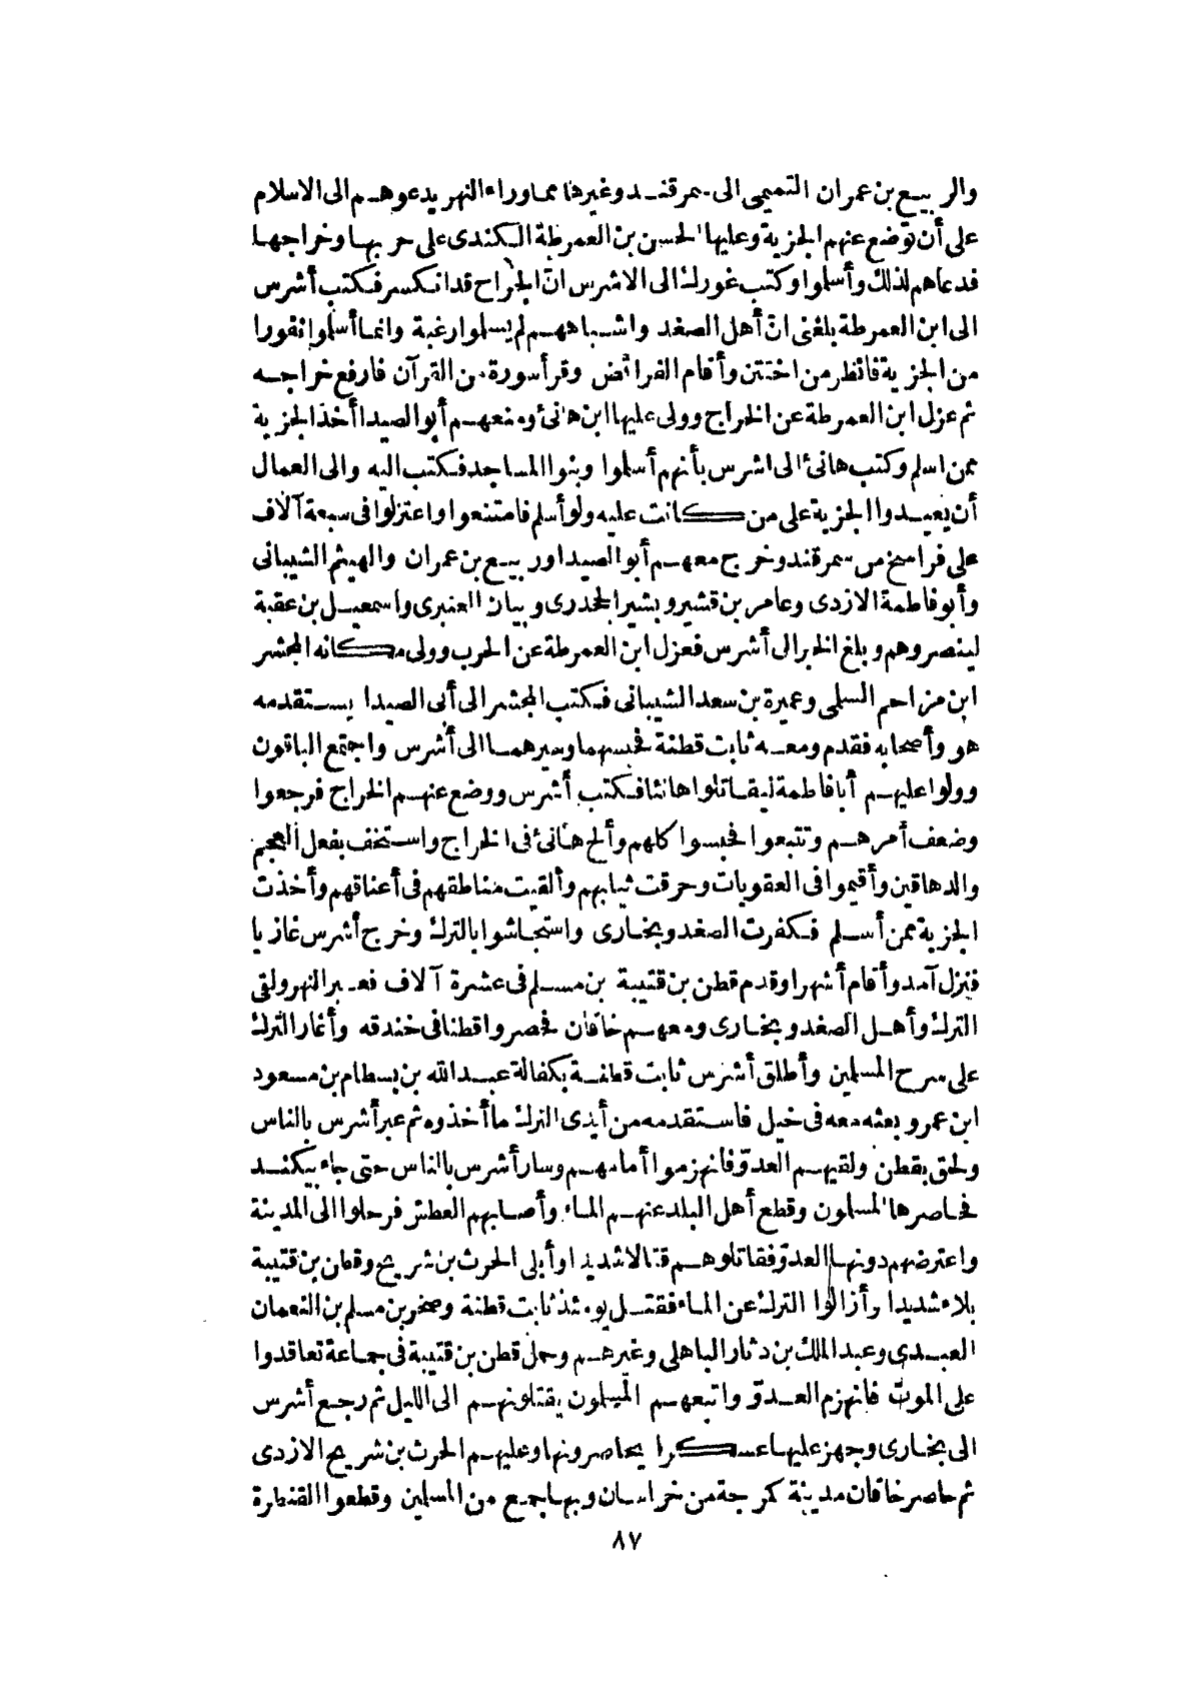 والربيع بن عمران التميمى الى سمرقند وغيرها مما وراء النهر يدعوهم الى الاسلام
على أن توضع عنهم الجزية وعليها الحسن بن العمرطة الكندى على حربها وخراجها
فدعاهم لذلك وأسلموا وكتب غورك الى الاشرس انّ الجراح قد انكسر فكتب أشرس
الى ابن العمرطة بلغنى انّ أهل الصغد واشباههم لم يسلموا رغبة وانما أسلموا نفورا
من الجزية فانظر من اختتن وأقام الفرائض وقرأ سورة من القرآن فارفع خراجه
ثم عزل ابن العمرطة عن الخراج وولى عليها ابن هانئ ومنعهم أبو الصيدا أخذ الجزية
ممن اسلم وكتب هانئ الى اشرس بأنهم أسلموا وبنوا المساجد فكتب اليه والى العمال
أن يعيدوا الجزية على من كانت عليه ولو أسلم فامتنعوا واعتزلوا فى سبعة آلاف
على فراسخ من سمرقند وخرج معهم أبو الصيدا وربيع بن عمران والهيثم الشيبانى
وأبو فاطمة الازدى وعامر بن قشير وبشير الجحدرى وبيان العنبرى واسمعيل بن عقبة
لينصروهم وبلغ الخبر الى أشرس فعزل ابن العمرطة عن الحرب وولى مكانه المجشر
ابن مزاحم السلمى وعميرة بن سعد الشيبانى فكتب المجشر الى أبى الصيدا يستقدمه
هو وأصحابه فقدم ومعه ثابت قطنة فحبسهما وسيرهما الى أشرس واجتمع الباقون
وولوا عليهم أبا فاطمة ليقاتلوا هانئا فكتب أشرس ووضع عنهم الخراج فرجعوا
وضعف أمرهم وتتبعوا فحبسوا كلهم وألح هانئ فى الخراج واستخف بفعل العجم
والدهاقين وأقيموا فى العقوبات وحرقت ثيابهم وألقيت مناطقهم فى أعناقهم وأخذت
الجزية ممن أسلم فكفرت الصغد وبخارى واستجاشوا بالترك وخرج أشرس غازيا
فنزل آمد وأقام أشهرا وقدم قطن بن قتيبة بن مسلم فى عشرة آلاف فعبر النهر ولقى
الترك وأهل الصغد وبخارى ومعهم خاقان فحصروا قطنا فى خندقه وأغار الترك
على سرح المسلمين وأطلق أشرس ثابت قطنة بكفالة عبد الله بن بسطام بن مسعود
ابن عمرو بعثه معه فى خيل فاستقدمه من أيدى الترك ما أخذوه ثم عبر أشرس بالناس
ولحق بقطن ولقيهم العدوّ فانهزموا أمامهم وسار أشرس بالناس حتى جاء بيكند
فحاصرها المسلمون وقطع أهل البلد عنهم الماء وأصابهم العطش فرحلوا الى المدينة
واعترضهم دونها العدوّ فقاتلوهم قتالا شديدا وأبلى الحرث بن شريح وقطن بن قتيبة
بلاء شديدا وأزالوا الترك عن الماء فقتل يومئذ ثابت قطنة وصخر بن مسلم بن النعمان
العبدى وعبد الملك بن دثار الباهلى وغيرهم وحمل قطن بن قتيبة فى جماعة تعاقدوا
على الموت فانهزم العدوّ واتبعهم المسلمون يقتلونهم الى الليل ثم رجع أشرس
الى بخارى وجهز عليها عسكرا يحاصرونها وعليهم الحرث بن شريح الازدى
ثم حاصر خاقان مدينة كمرجة من خراسان وبها جمع من المسلمين وقطعوا القنطرة
٨٧